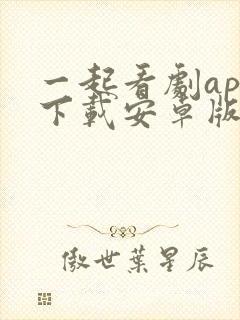 一起看劇ap
下載安卓版
傲世葉星辰